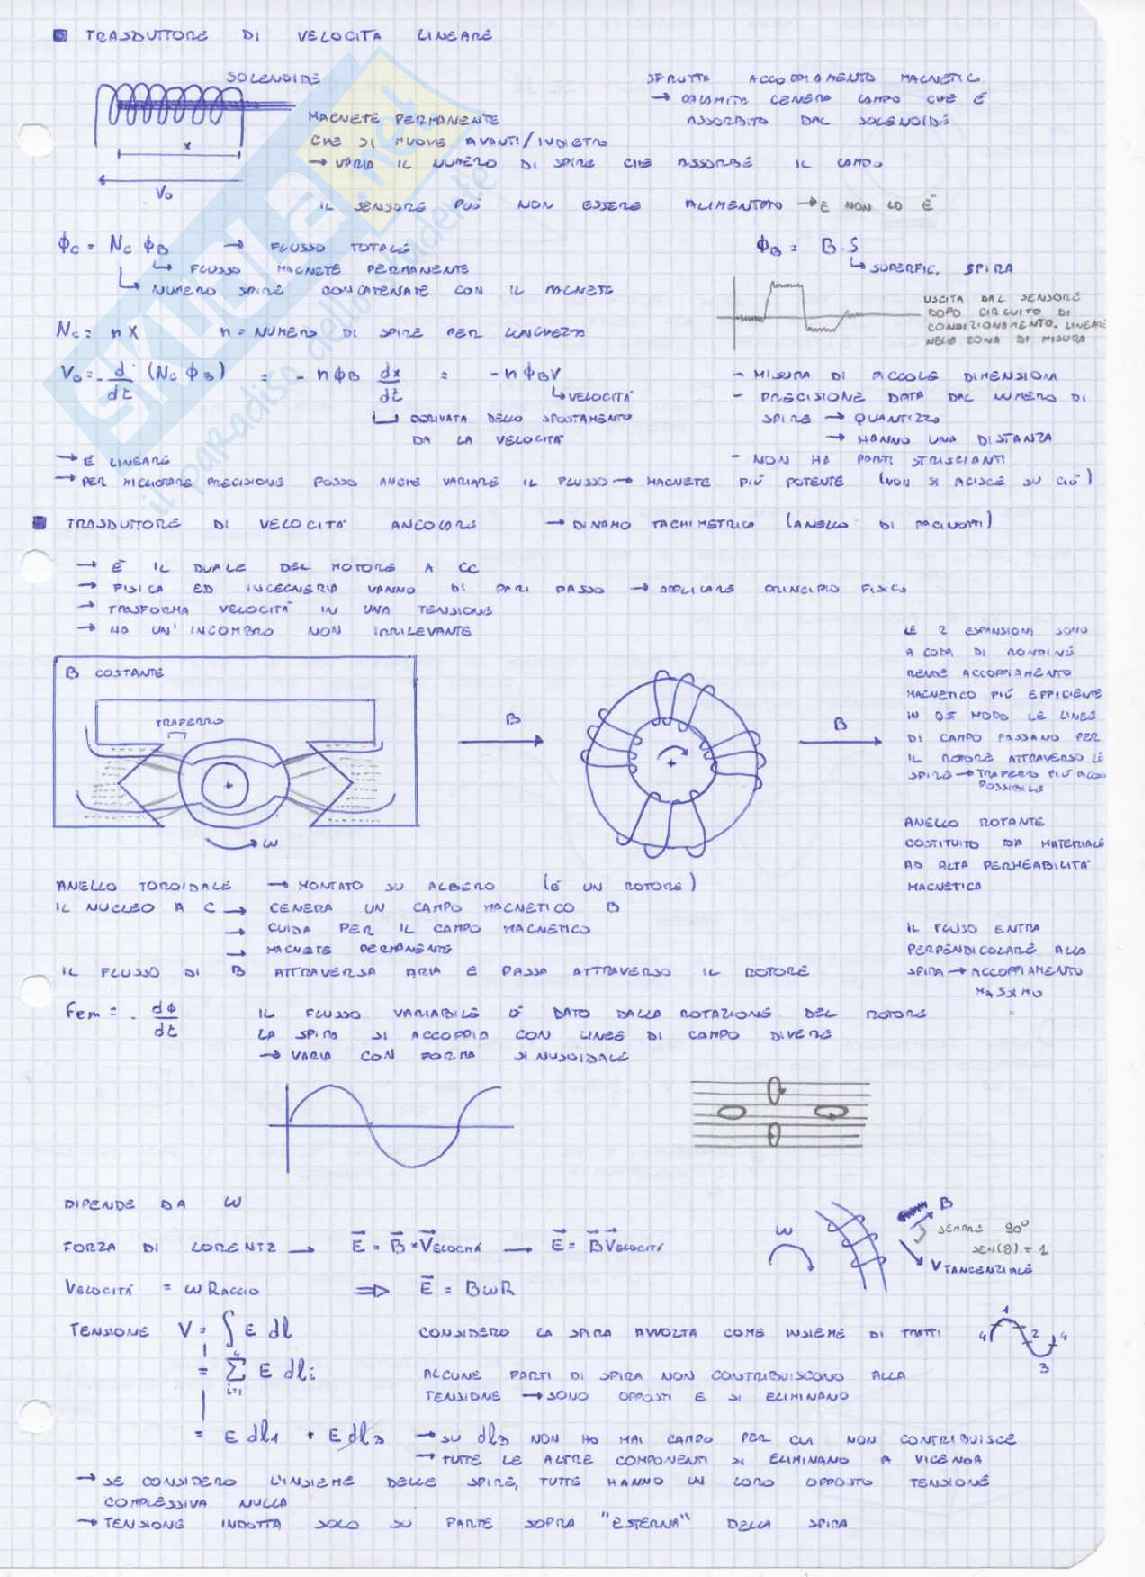 TRASDUTTORE DI VELOCITA LINEARE
SOLENOIDE
SFRUTTA ACCOPPIAMENTO MAGNETIC
→ CALAMITA GENERA CAMPO CHE È
ASSORBITO DAL SOLENOIDE
MAGNETE PERMANENTE
CHE SI MUOVE AVANTI/INDIETRO
→ VARIA IL NUMERO DI SPIRE CHE ASSORBE IL CAMPO
x
V₀
IL SENSORE PUÒ NON ESSERE ALIMENTATO → E NON LO È
ϕc = Nc ϕB → FLUSSO TOTALE
↳ FLUSSO MAGNETE PERMANENTE
↳ NUMERO SPIRE CONCATENATE CON IL MAGNETE
ϕB = B·S
↳ SUPERFIC. SPIRA
USCITA DAL SENSORE
DOPO CIRCUITO DI
CONDIZIONAMENTO. LINEARE
NELLA ZONA DI MISURA
Nc = n x n = NUMERO DI SPIRE PER LUNGHEZZA
V₀ = - d/dt (Nc ϕB) = - n ϕB dx/dt = - n ϕB V
↳ VELOCITÀ
↳ DERIVATA DELLO SPOSTAMENTO
DA LA VELOCITÀ
- MISURA DI PICCOLE DIMENSIONI
- PRECISIONE DATA DAL NUMERO DI
SPIRE → QUANTIZZO
→ HANNO UNA DISTANZA
- NON HA PARTI STRISCIANTI
→ È LINEARE
→ PER MIGLIORARE PRECISIONE POSSO ANCHE VARIARE IL FLUSSO → MAGNETE PIÙ POTENTE (NON SI AGISCE SU CIÒ)
TRASDUTTORE DI VELOCITÀ ANGOLARE → DINAMO TACHIMETRICA (ANELLO DI PACINOTTI)
→ È IL DUALE DEL MOTORE A CC
→ FISICA ED INGEGNERIA VANNO DI PARI PASSO → APPLICARE PRINCIPIO FISICI
→ TRASFORMA VELOCITÀ IN UNA TENSIONE
→ HA UN' INGOMBRO NON IRRILEVANTE
B COSTANTE
TRAFERRO
ω
B
B
LE 2 ESPANSIONI SONO
A CODA DI RONDINE
RENDE ACCOPPIAMENTO
MAGNETICO PIÙ EFFICIENTE
IN QS MODO LE LINEE
DI CAMPO PASSANO PER
IL ROTORE ATTRAVERSO LE
SPIRE → TRAFERRO PIÙ
POSSIBILE
ANELLO ROTANTE
COSTITUITO DA MATERIALE
AD ALTA PERMEABILITÀ
MAGNETICA
IL FLUSSO ENTRA
PERPENDICOLARE ALLA
SPIRA → ACCOPPIAMENTO
MASSIMO
ANELLO TOROIDALE → MONTATO SU ALBERO (È UN ROTORE)
IL NUCLEO A C → GENERA UN CAMPO MAGNETICO B
→ GUIDA PER IL CAMPO MAGNETICO
→ MAGNETE PERMANENTE
IL FLUSSO DI B ATTRAVERSA ARIA E PASSA ATTRAVERSO IL ROTORE
Fem = - dΦ/dt
IL FLUSSO VARIABILE È DATO DALLA ROTAZIONE DEL ROTORE
LA SPIRA SI ACCOPPIA CON LINEE DI CAMPO DIVERSE
→ VARIA CON FORMA SINUSOIDALE
DIPENDE DA ω
FORZA DI LORENTZ → E = B × VELOCITÀ → E = B VELOCITÀ
ω
B
SEMPRE 90°
SEN(θ) = 1
V TANGENZIALE
VELOCITÀ = ω RAGGIO ⇒ E = BωR
TENSIONE V = ∫ E dl
CONSIDERO LA SPIRA AVVOLTA COME INSIEME DI TRATTI
1
4 2 4
3
= Σ E dli
ALCUNE PARTI DI SPIRA NON CONTRIBUISCONO ALLA
TENSIONE → SONO OPPOSTI E SI ELIMINANO
= E dl1 + E dl3 → SU dl3 NON HO MAI CAMPO PER CUI NON CONTRIBUISCE
→ TUTTE LE ALTRE COMPONENTI SI ELIMINANO A VICENDA
→ SE CONSIDERO L'INSIEME DELLE SPIRE, TUTTE HANNO UN LORO OPPOSTO TENSIONE
COMPLESSIVA NULLA
→ TENSIONE INDOTTA SOLO SU PARTE SOPRA "ESTERNA" DELLA SPIRA
SKUOLA.net
il paradiso dello studente